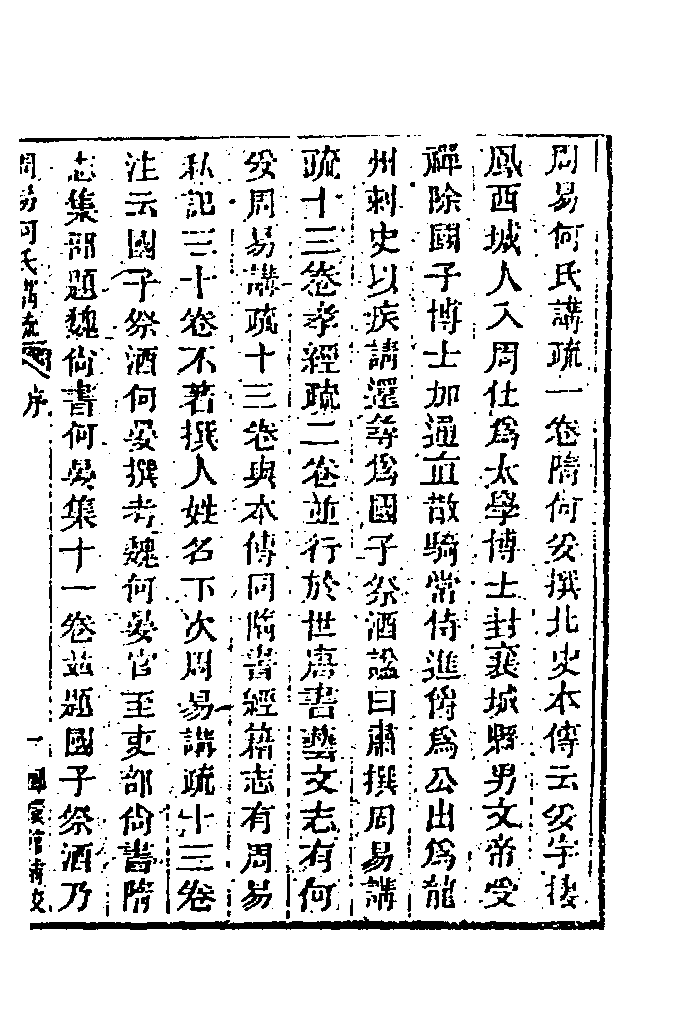 周易何氏講疏一卷隋何妥撰北史本傳云妥字棲
鳳西城人入周仕為太學博士封襄城縣男文帝受
禪除國子博士加通直散騎常侍進爵為公出為龍
州刺史以疾請還尋為國子祭酒諡曰肅撰周易講
疏十三卷孝經疏二卷並行於世唐書藝文志有何
妥周易講疏十三卷與本傳同隋書經籍志有周易
私記二十卷不著撰人姓名下次周易講疏十三卷
注云國子祭酒何晏撰考魏何晏官至吏部尚書隋
志集部題魏尚書何晏集十一卷並題國子祭酒乃
周易何氏講疏 序 一